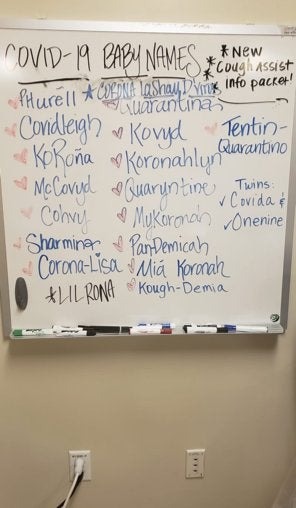 COVID-19 BABY NAMES
* New
* Cough Assist
info packet!
* CORONA LaShay D'Virus
PHurell
Quarantina
Covidleigh
Kovyd
Tentin-
Quarantino
KoRoña
Koronahlyn
McCovyd
Quaryntine
Twins:
✓ Covida &
✓ Onenine
Cohvy
MyKoronah
Sharminer
PanDemicah
Corona-Lisa
Miá Koronah
* LIL RONA
Kough-Demia